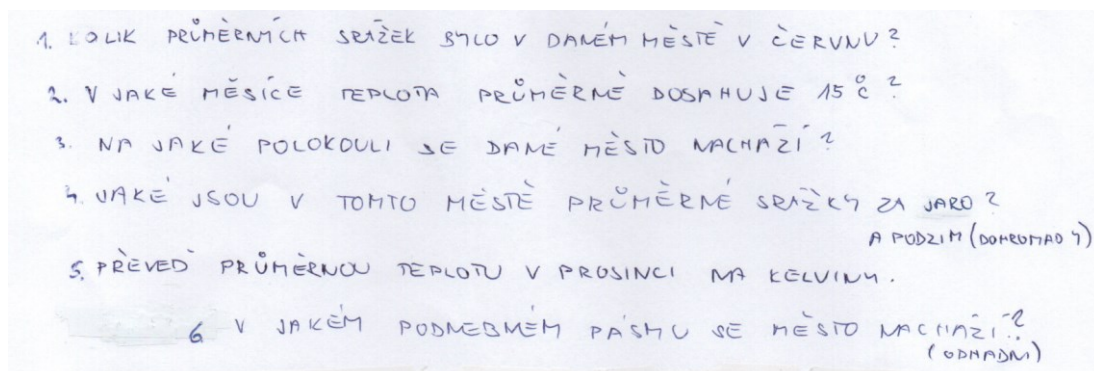 1. KOLIK PRŮMĚRNÝCH SRÁŽEK BYLO V DANÉM MĚSTĚ V ČERVNU?
2. V JAKÉ MĚSÍCE TEPLOTA PRŮMĚRNĚ DOSAHUJE 15°C?
3. NA JAKÉ POLOKOULI SE DANÉ MĚSTO NACHÁZÍ?
4. JAKÉ JSOU V TOMTO MĚSTĚ PRŮMĚRNÉ SRÁŽKY ZA JARO?
A PODZIM (DOHROMADY)
5. PŘEVEĎ PRŮMĚRNOU TEPLOTU V PROSINCI NA KELVINY.
6 V JAKÉM PODNEBNÉM PÁSMU SE MĚSTO NACHÁZÍ?
(ODHADNI)